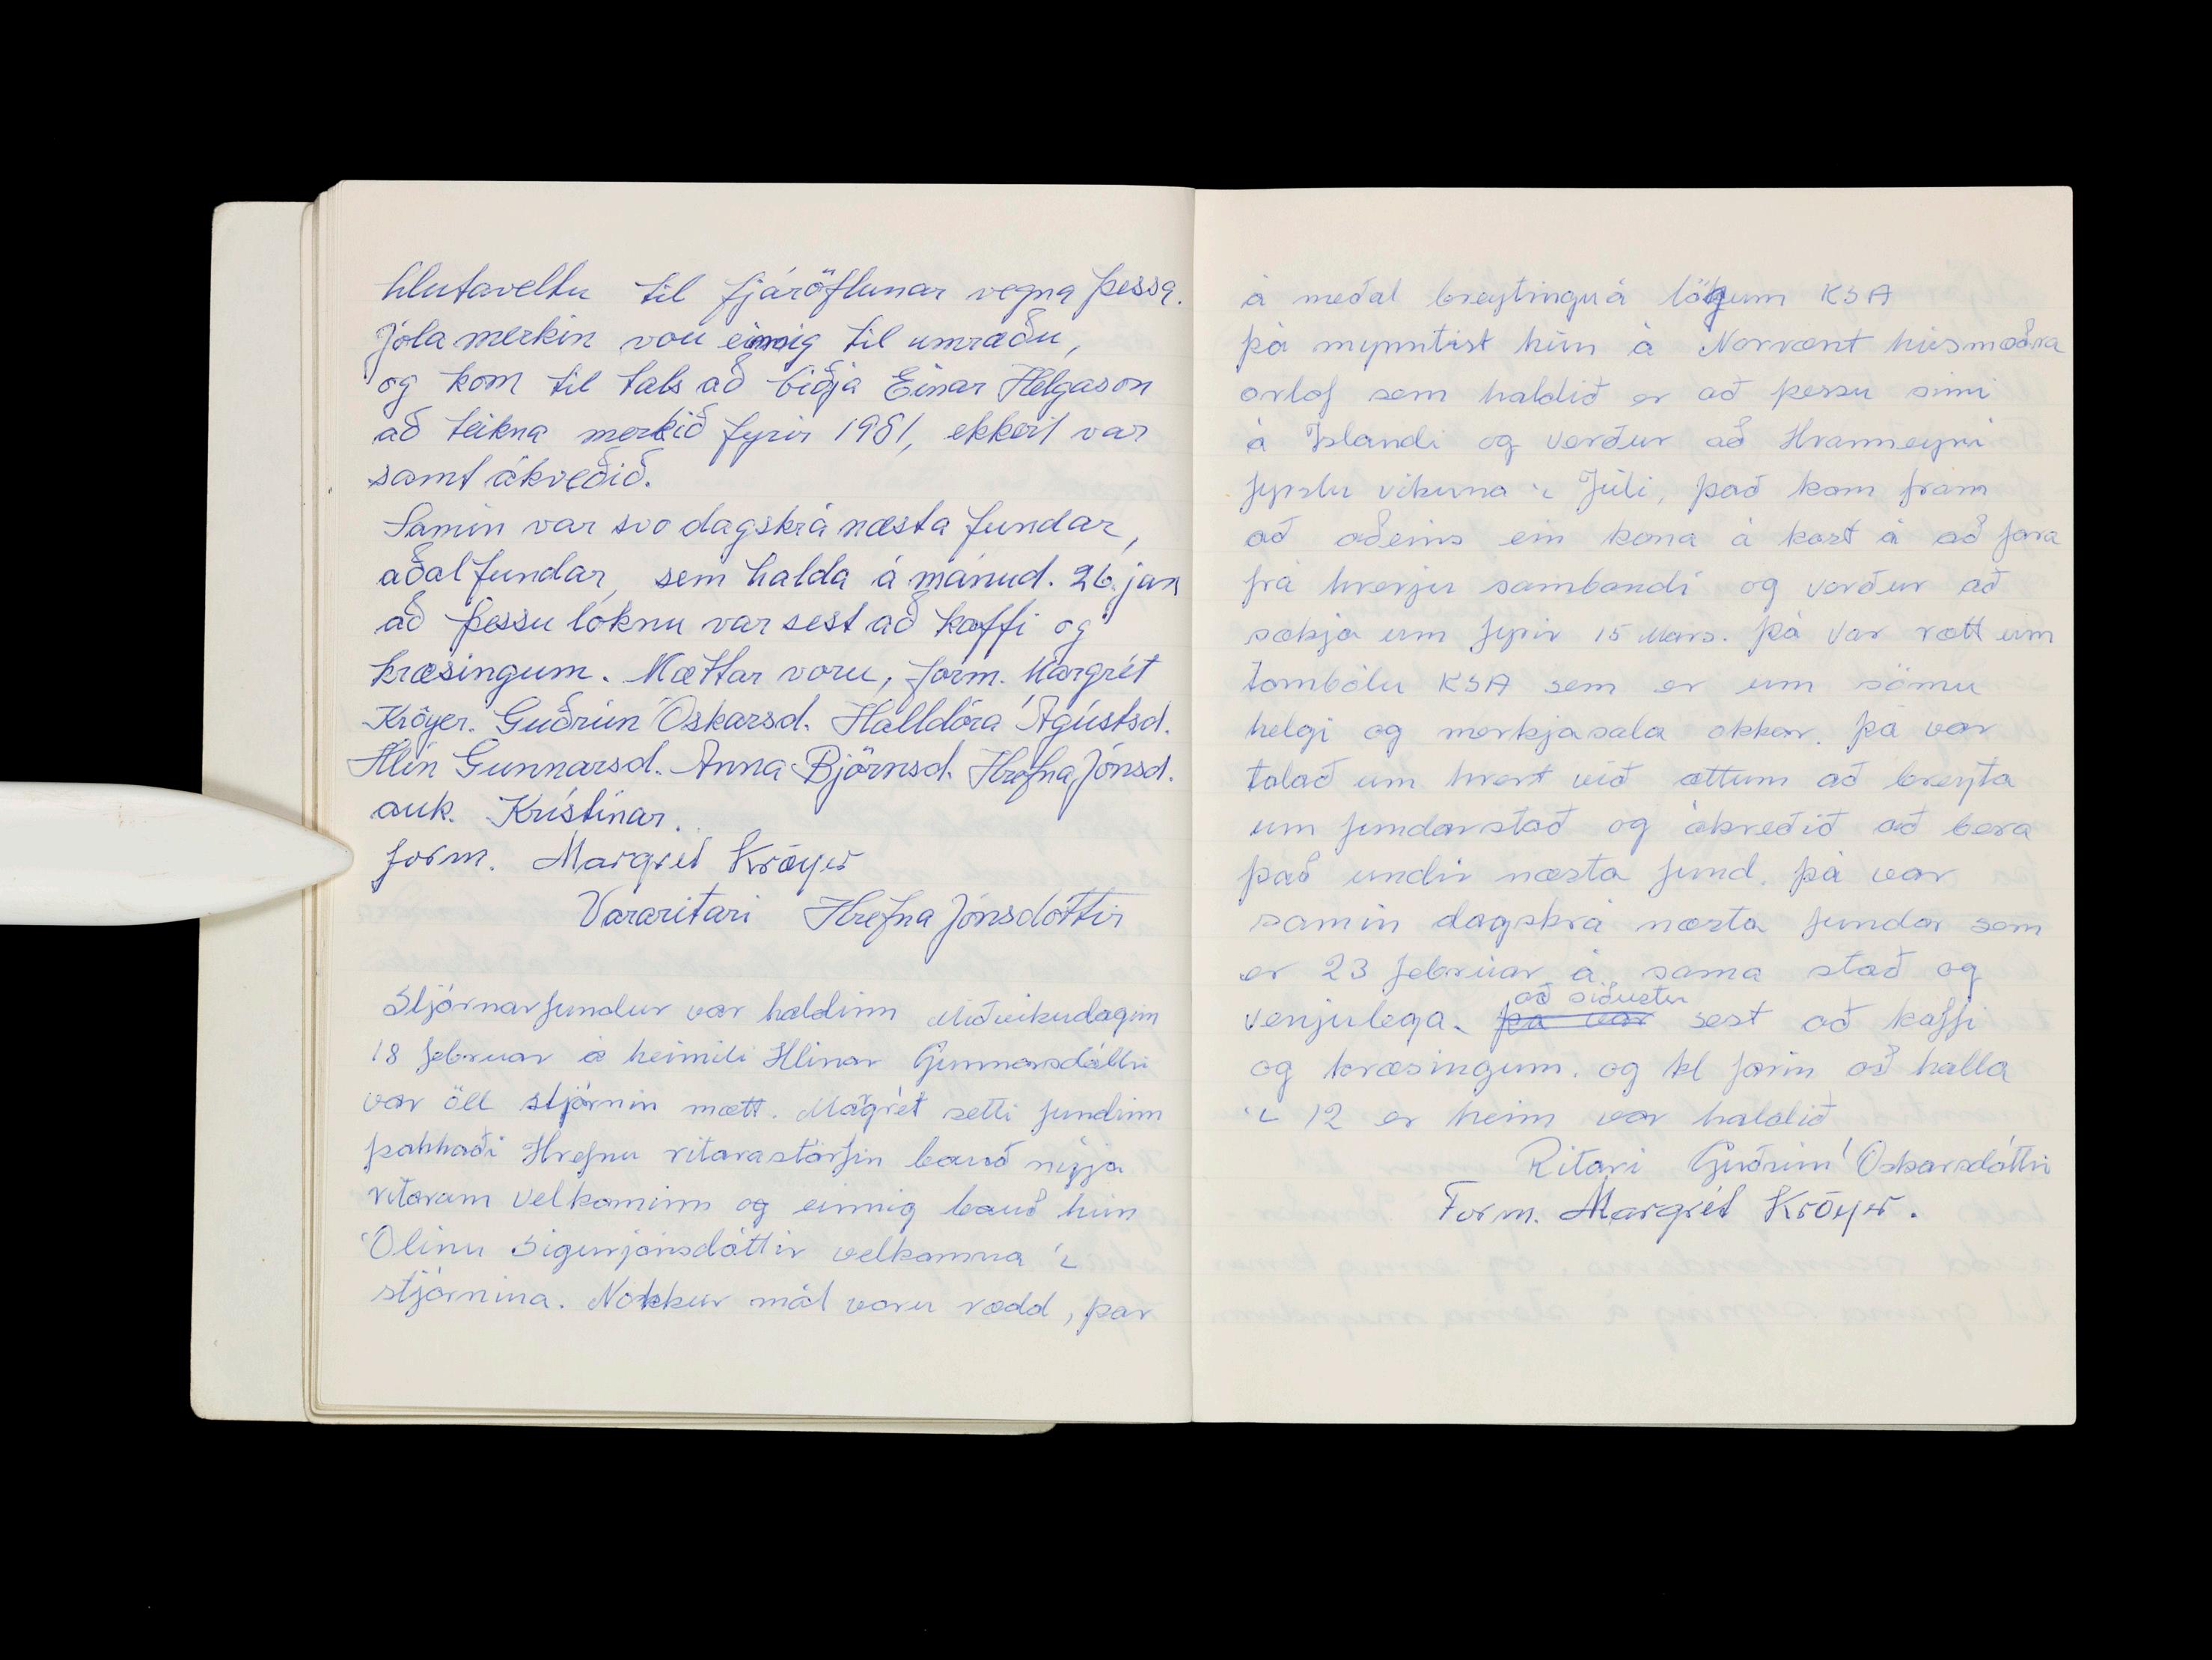 hlutaveltu til fjáröflunar vegna þessa.
Jólamerkin vou einnig til umræðu,
og kom til tals að biðja Einar Helgason
að teikna merkið fyrir 1981, ekkert var
samt ákveðið.
Samin var svo dagskrá næsta fundar,
aðalfundar, sem halda á mánud. 26. jan
að þessu loknu var sest að kaffi og
kræsingum. Mættar voru, form. Margrét
Kröyer. Guðrún Óskarsd. Halldóra Ágústsd.
Hlín Gunnarsd. Anna Björnsd. Hrefna Jónsd.
auk. Kristínar.
form. Margrét Kröyer
Vararitari Hrefna Jónsdóttir
Stjórnarfundur var haldinn Miðvikudagin
18 februar á heimili Hlinar Gunnarsdóttir
var öll stjórnin mætt. Magrét setti fundinn
þahhaði Hrefnu ritarastörfin bauð nýja
ritaram velkominn og einnig bauð hún
Ólínu Sigurjónsdóttir velkomna í
stjórnina. Nokkur mál voru rædd, þar
á meðal breytingu á lögum KSA
þá mynntist hún á Norrænt húsmæðra
orlof sem haldið er að þessu sinni
á Íslandi og verður að Hvanneyri
fyrstu vikuna í Júli, það kom fram
að aðeins ein kona á kost á að fara
frá hverju sambandi og verður að
sækja um fyrir 15 Mars. þá var rætt um
tombólu KSA sem er um sömu
helgi og merkjasala okkar. þá var
talað um hvert við ættum að breyta
um fundarstað og ákveðið að bera
það undir næsta fund. þá var
samin dagskrá næsta fundar sem
er 23 februar á sama stað og
venjulega. þá var að síðustu sest að kaffi
og kræsingum. og kl farin að halla
í 12 er heim var haldið
Ritari Guðrún Óskarsdóttir
Form. Margrét Kröyer.